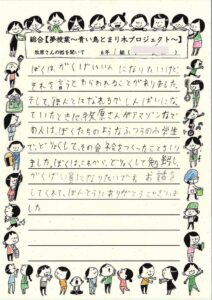 総合【夢授業～青い鳥とまり木プロジェクト～】
牧原さんの話を聞いて 6年 組(
ぼくは、がくげいいん になりたいけど
それを言うと わらわれることがありました。
そして、ほんとになれるか しんぱいにな
っていたとき、牧原さんがアマゾンなどで
の人は、ぼくたちのような ふつうの小学生
で、どりょくして、その会社をつくったことをし
りました。ぼくは、これから、どりょくして、勉強し、
がくげい員になりたいです。お話を
してくれて、ほんとうに ありがとうございま
した